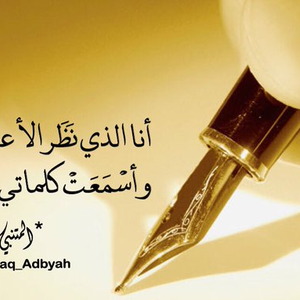 أنا الذي نَظَر الأع
وأسْمَعَتْ كلماتي
*المتنبي
aq_Adbyah